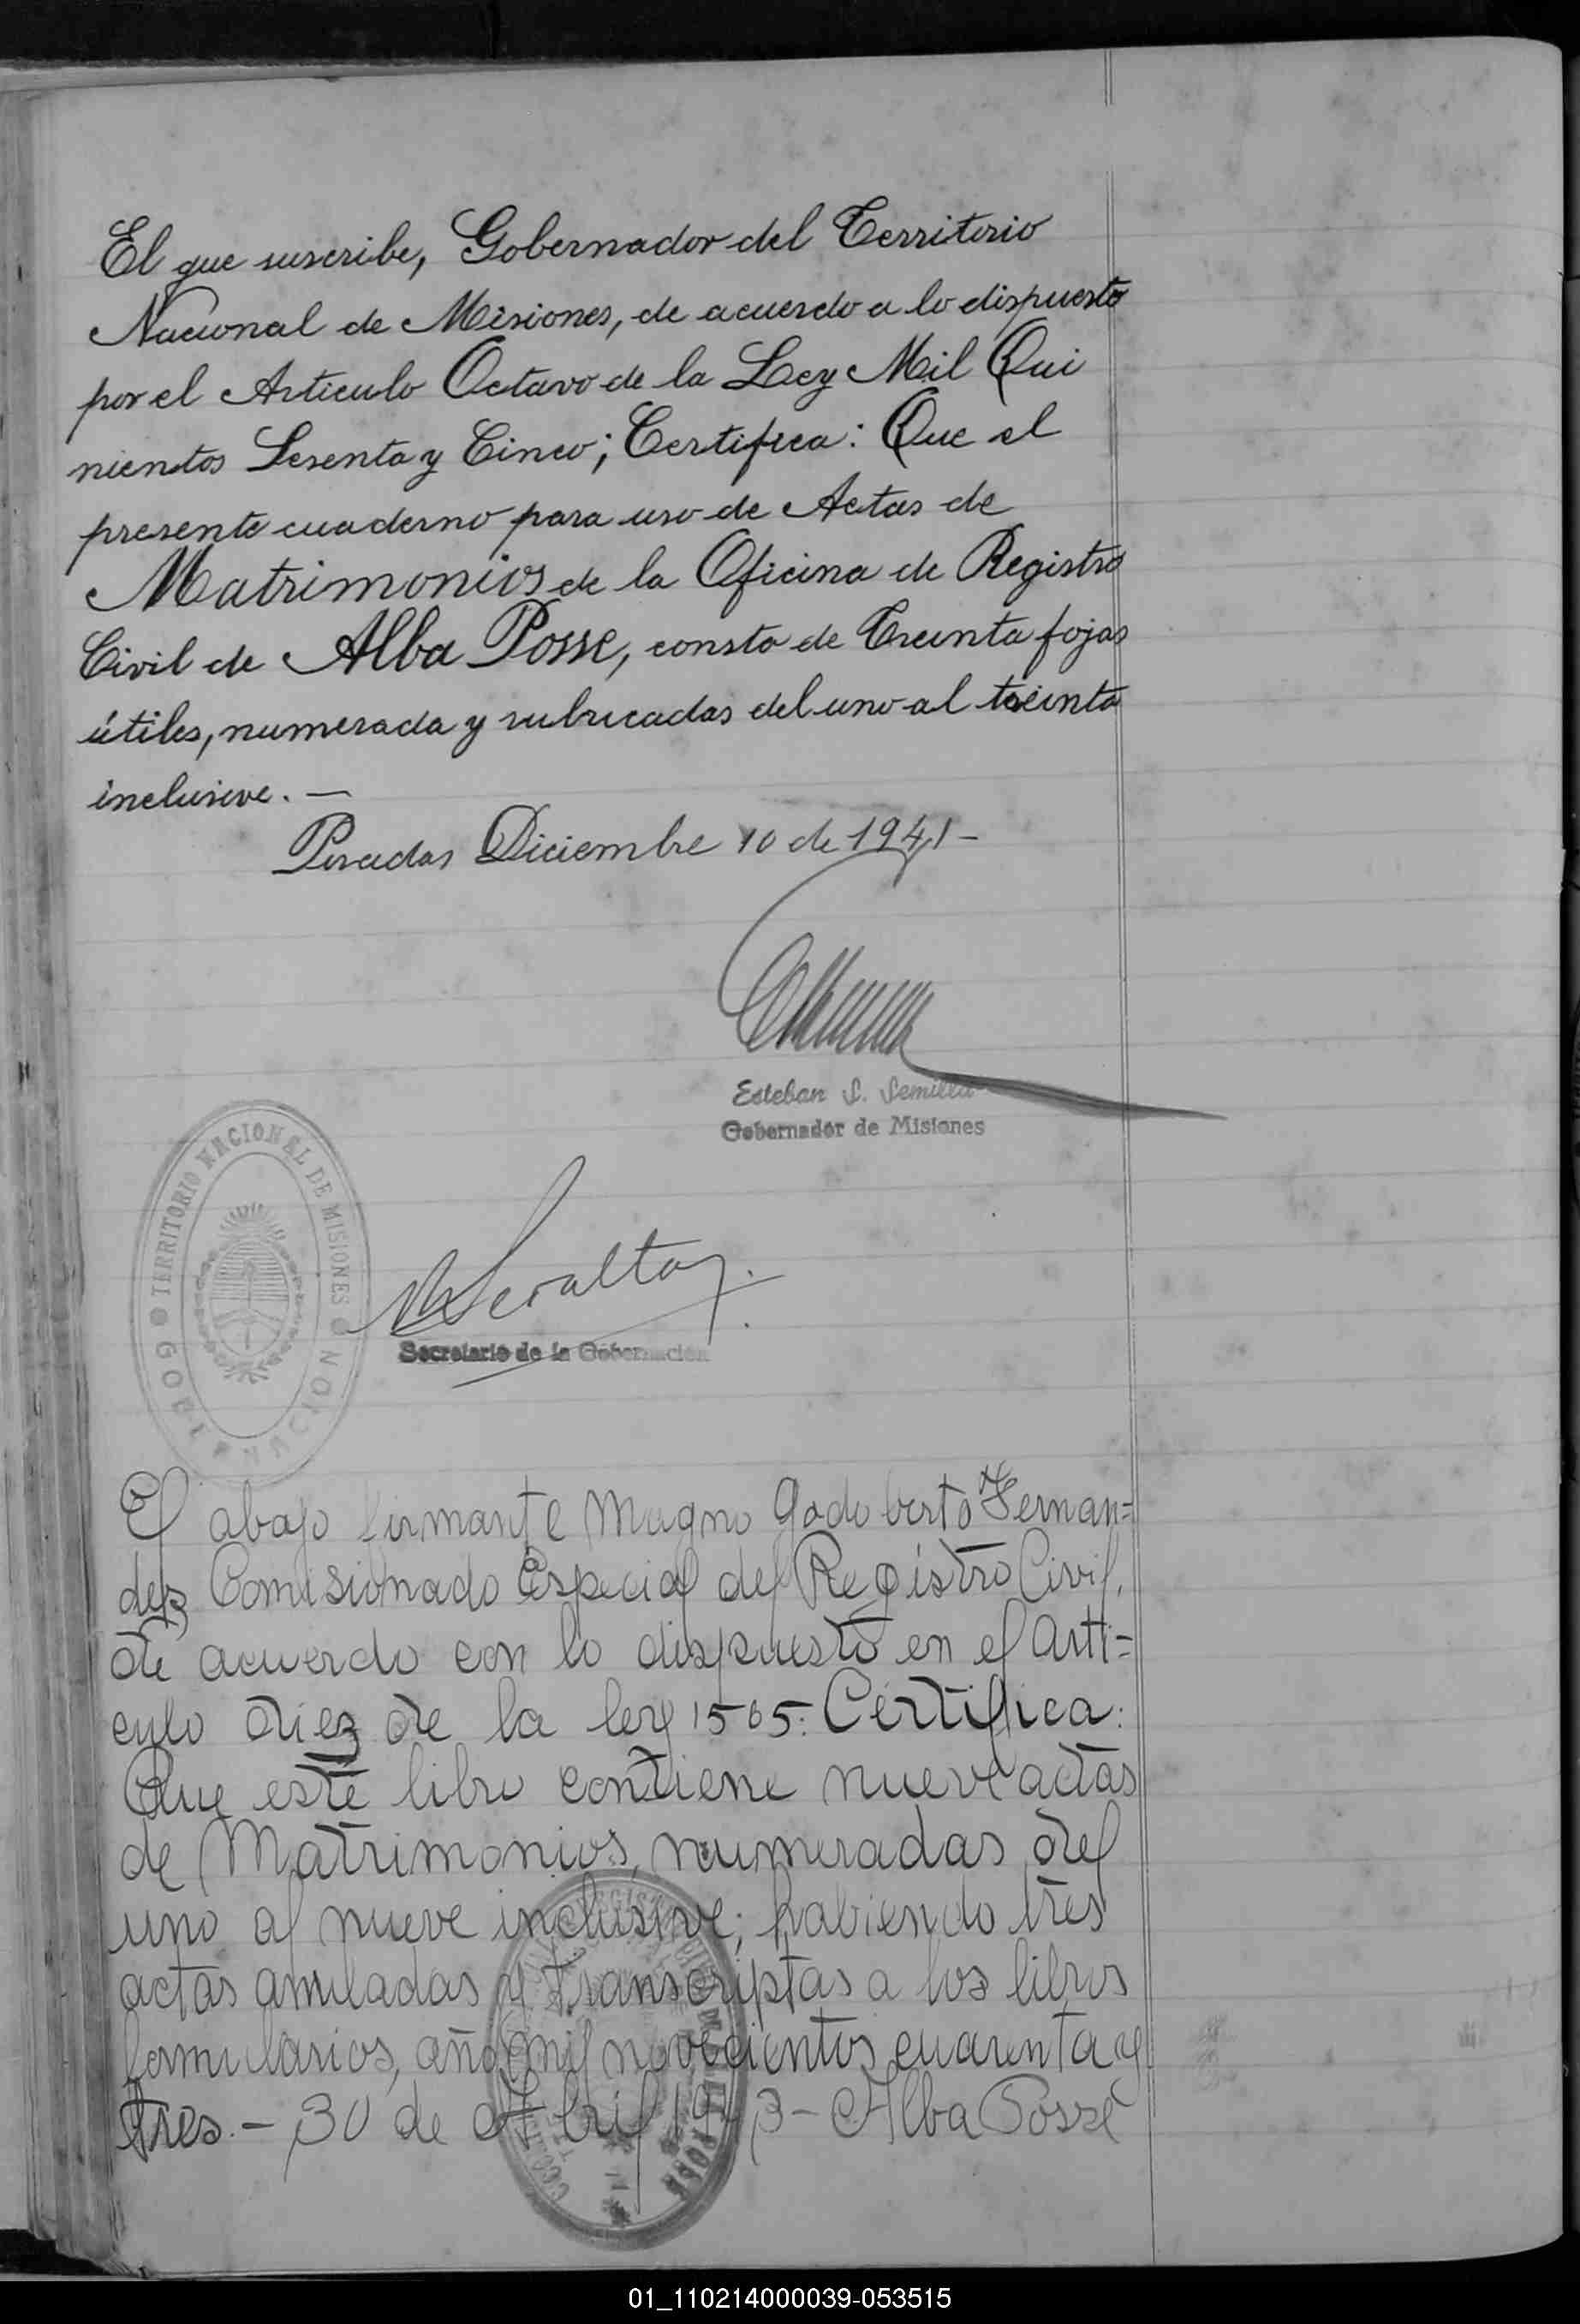 El que suscribe, Gobernador del Territorio
Nacional de Misiones, de acuerdo a lo dispuesto
por el Articulo Octavo de la Ley Mil Qui
nientos Sesenta y Cinco; Certifica: Que el
presente cuaderno para uso de Actas de
Matrimonios de la Oficina de Registro
Civil de Alba Posse, consta de Treinta fojas
útiles, numerada y rubricadas del uno al treinta
inclusive. —
Posadas Diciembre 10 de 1941-
Esteban S. Semilla
Gobernador de Misiones
TERRITORIO NACIONAL DE MISIONES
GOBERNACION
Peralta
Secretario de la Gobernación
El abajo firmante Magno Godoberto Fernan=
dez Comisionado Especial del Registro Civil,
de acuerdo con lo dispuesto en el Arti=
culo diez de la ley 1565: Certifica:
Que este libro contiene nueve actas
de Matrimonios, numeradas del
uno al nueve inclusive; habiendo tres
actas anuladas y transcriptas a los libros
formularios, año mil novecientos cuarenta y
tres.- 30 de Abril 1943- Alba Posse
01_110214000039-053515